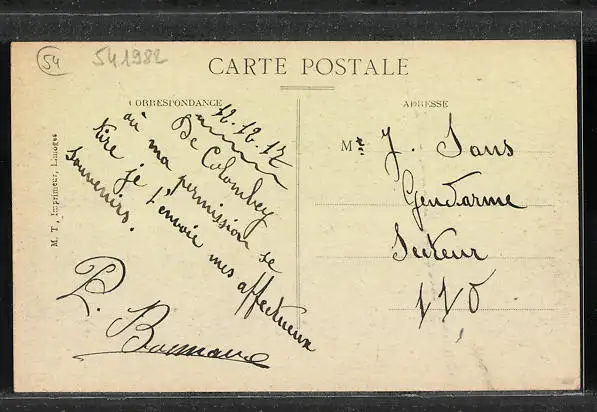 54
541982
CARTE POSTALE
CORRESPONDANCE
ADRESSE
12.12.17
De Colombey
où ma permission se
tire je t'envoie mes affectueux
souvenirs.
P.
M. T., Imprimeur, Limoges
Mr J. Sans
Gendarme
Secteur
110